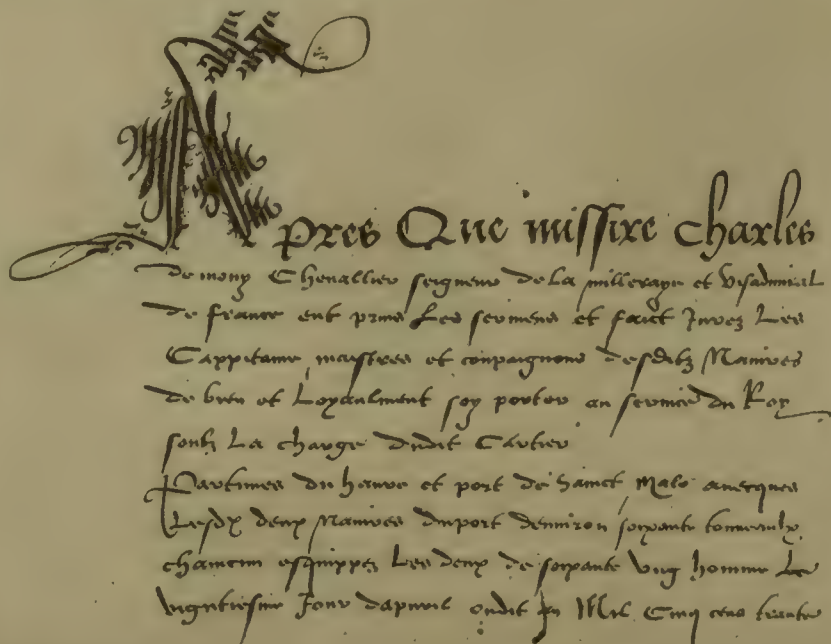 Apres Que missire Charles
de mouy Chevallier seigneur de la milleraye et visadmiral
de france eut prins Les sermens et faict Jurez Les
Cappitaine maistres et conpaignons desditz Navires
de bien et Loyaulment soy porter au service du Roy
soubz La charge dudit Cartier
Partimes du havre et port de sainct Malo avecques
Lesdx deux Navires du port denviron soixante tonneaulx
chaincun esquippez Les deux de soixante ung homme Le
vigntiesme Jour dapvril oudit an Mil Cinq cens trante